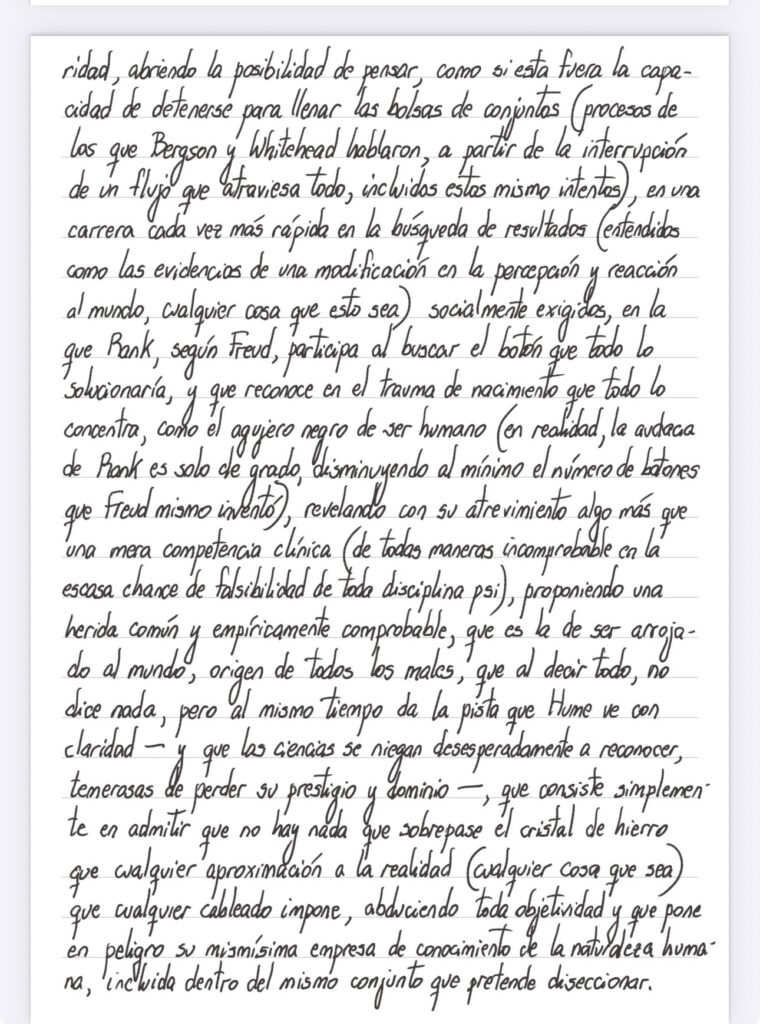 ridad, abriendo la posibilidad de pensar, como si esta fuera la capa-
cidad de detenerse para llenar las bolsas de conjuntos (procesos de
los que Bergson y Whitehead hablaron, a partir de la interrupción
de un flujo que atraviesa todo, incluidos estos mismo intentos), en una
carrera cada vez más rápida en la búsqueda de resultados (entendidos
como las evidencias de una modificación en la percepción y reacción
al mundo, cualquier cosa que esto sea) socialmente exigidos, en la
que Rank, según Freud, participa al buscar el botón que todo lo
solucionaría, y que reconoce en el trauma de nacimiento que todo lo
concentra, como el agujero negro de ser humano (en realidad, la audacia
de Rank es solo de grado, disminuyendo al mínimo el número de botones
que Freud mismo inventó), revelando con su atrevimiento algo más que
una mera competencia clínica (de todas maneras incomprobable en la
escasa chance de falsibilidad de toda disciplina psi), proponiendo una
herida común y empíricamente comprobable, que es la de ser arroja-
do al mundo, origen de todos los males, que al decir todo, no
dice nada, pero al mismo tiempo da la pista que Hume ve con
claridad — y que las ciencias se niegan desesperadamente a reconocer,
temerosas de perder su prestigio y dominio —, que consiste simplemen-
te en admitir que no hay nada que sobrepase el cristal de hierro
que cualquier aproximación a la realidad (cualquier cosa que sea)
que cualquier cableado impone, abduciendo toda objetividad y que pone
en peligro su mismísima empresa de conocimiento de la naturaleza huma-
na, incluida dentro del mismo conjunto que pretende diseccionar.